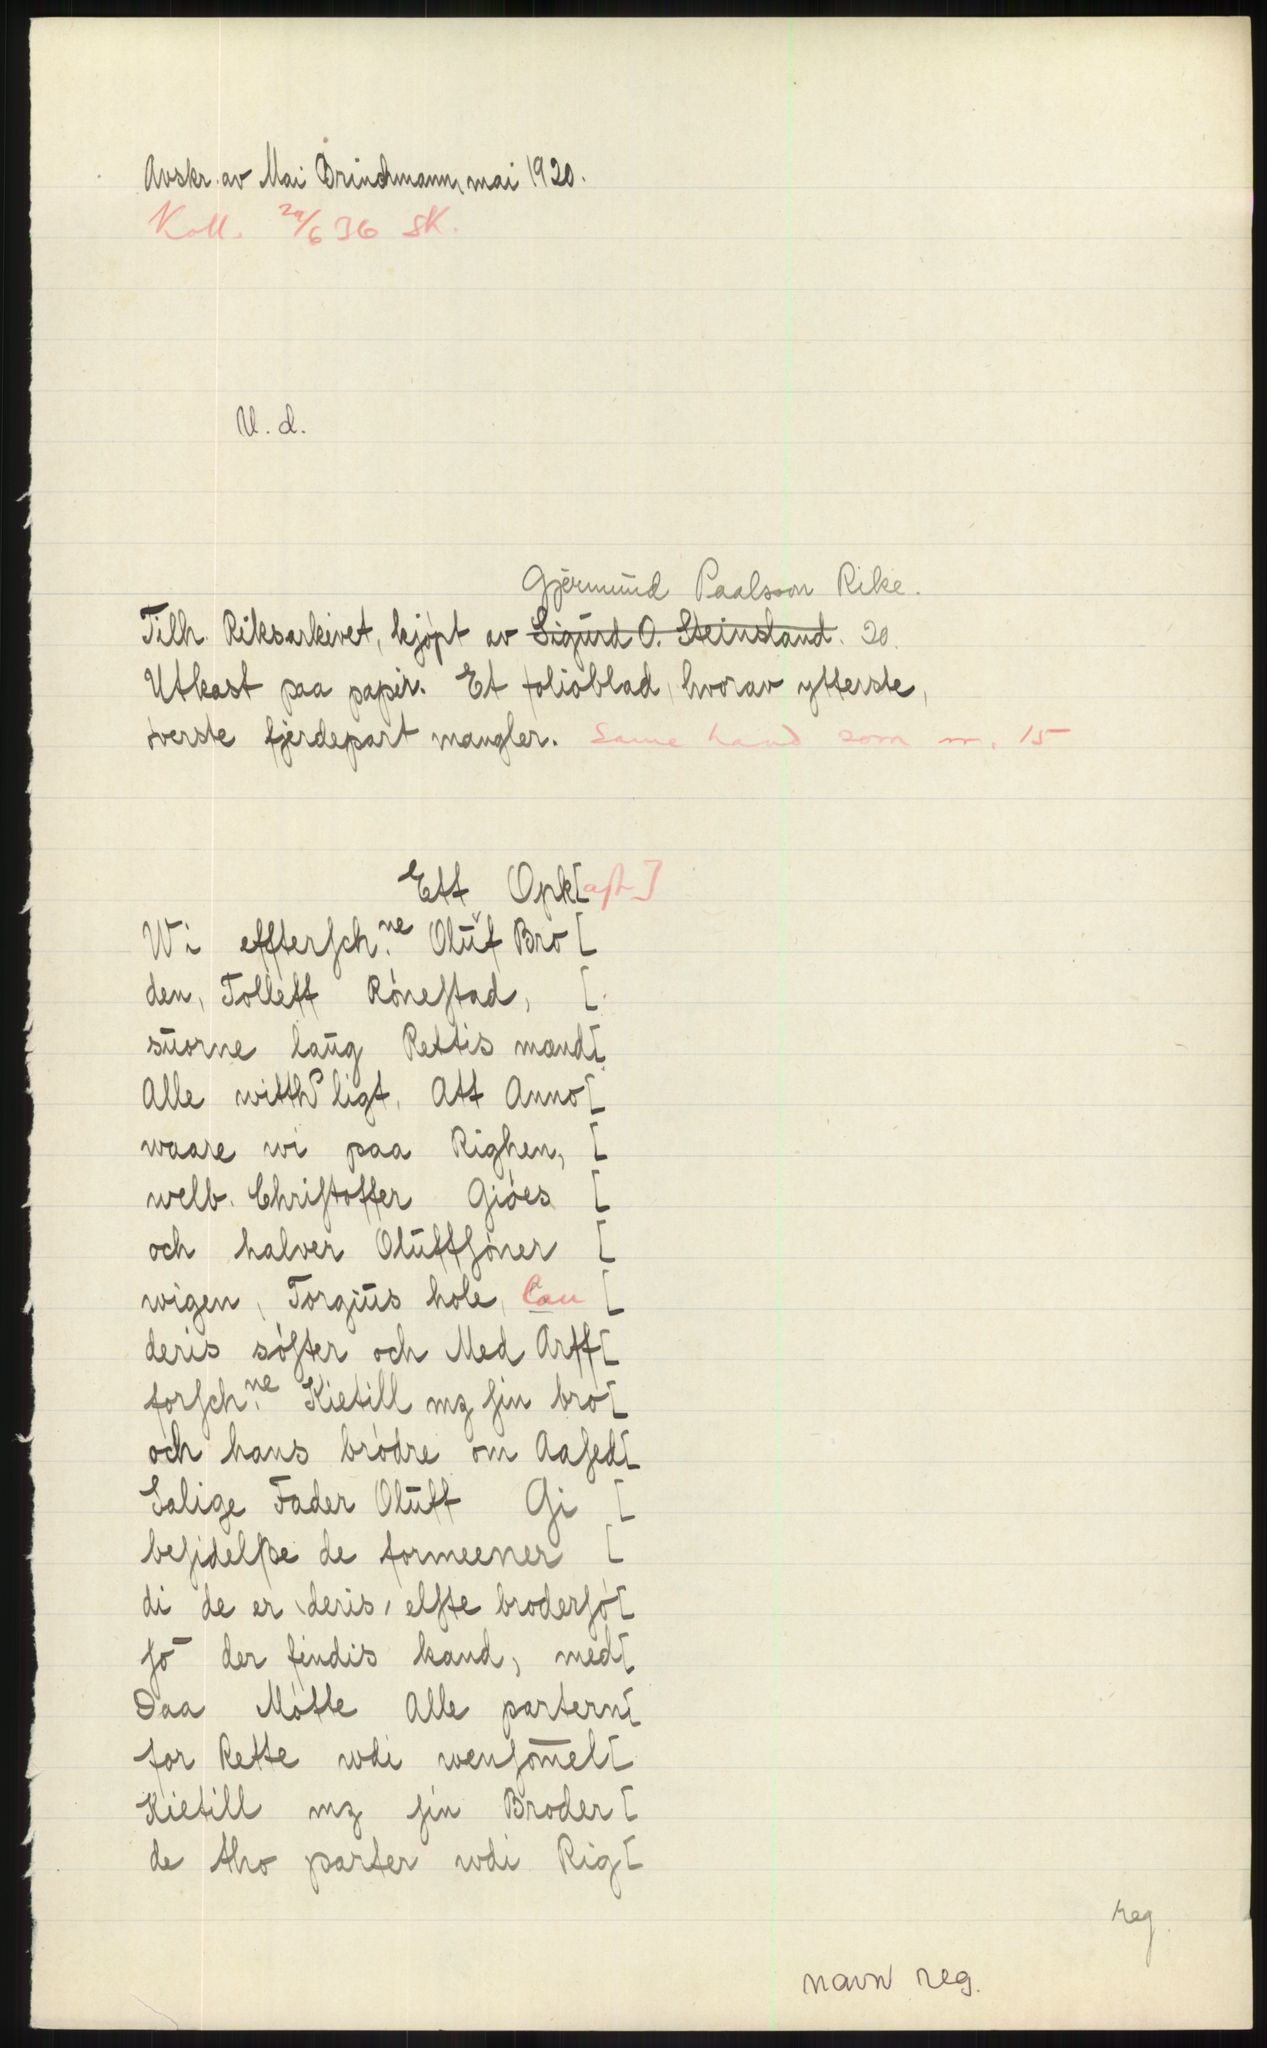 Avskr. av Mai Brinchmann, mai 1920.
Koll. 29/6 36 SK.
U. d.
Gjermund Paalsson Rike.
Tilh. Riksarkivet, kjøpt av Sigurd O. Steinsland. 20.
Utkast paa papir. Et folioblad, hvorav ytterste,
øverste fjerdepart mangler. Same hand som nr. 15
Ett Opk[aſt]
Wi effterſch.ne Oluf Bro [
den, Tolleff Röneſtad, [
suorne laug Rettis mend[
Alle witthligt, Att Anno [
waare wi paa Righen, [
welb. Chriſtoffer Giöes [
och halver Oluffſöner [
wigen, Torgius hole, Cau [
deris söſter och Med Arff[
forſch.ne Kietill mz ſin bro[
och hans brödre om Aaſed[
Salige Fader Oluff Gi [
beſidelße de formeener [
di de er deris elſte broderſö[
ſō der findis kand, med[
Daa Mötte Alle partern[
for Rette wdi wenſōmel[
Kietill mz ſin Broder [
de tho parter wdi Rig[
reg.
navn reg.